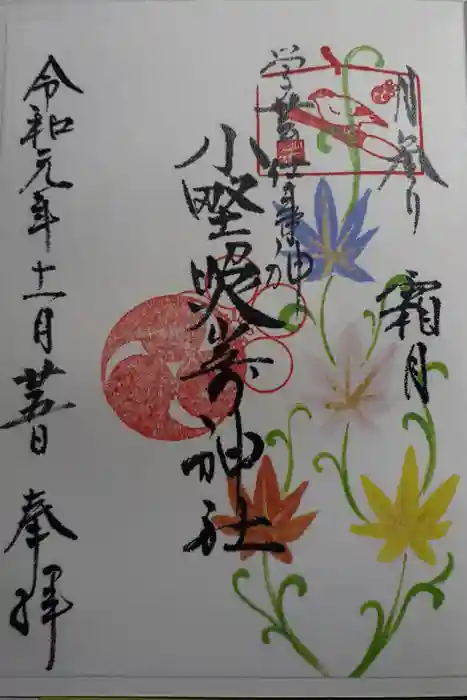 月参り
霜月
学芸仕事の神
小野照崎神社
令和元年十一月廿五日
奉拝